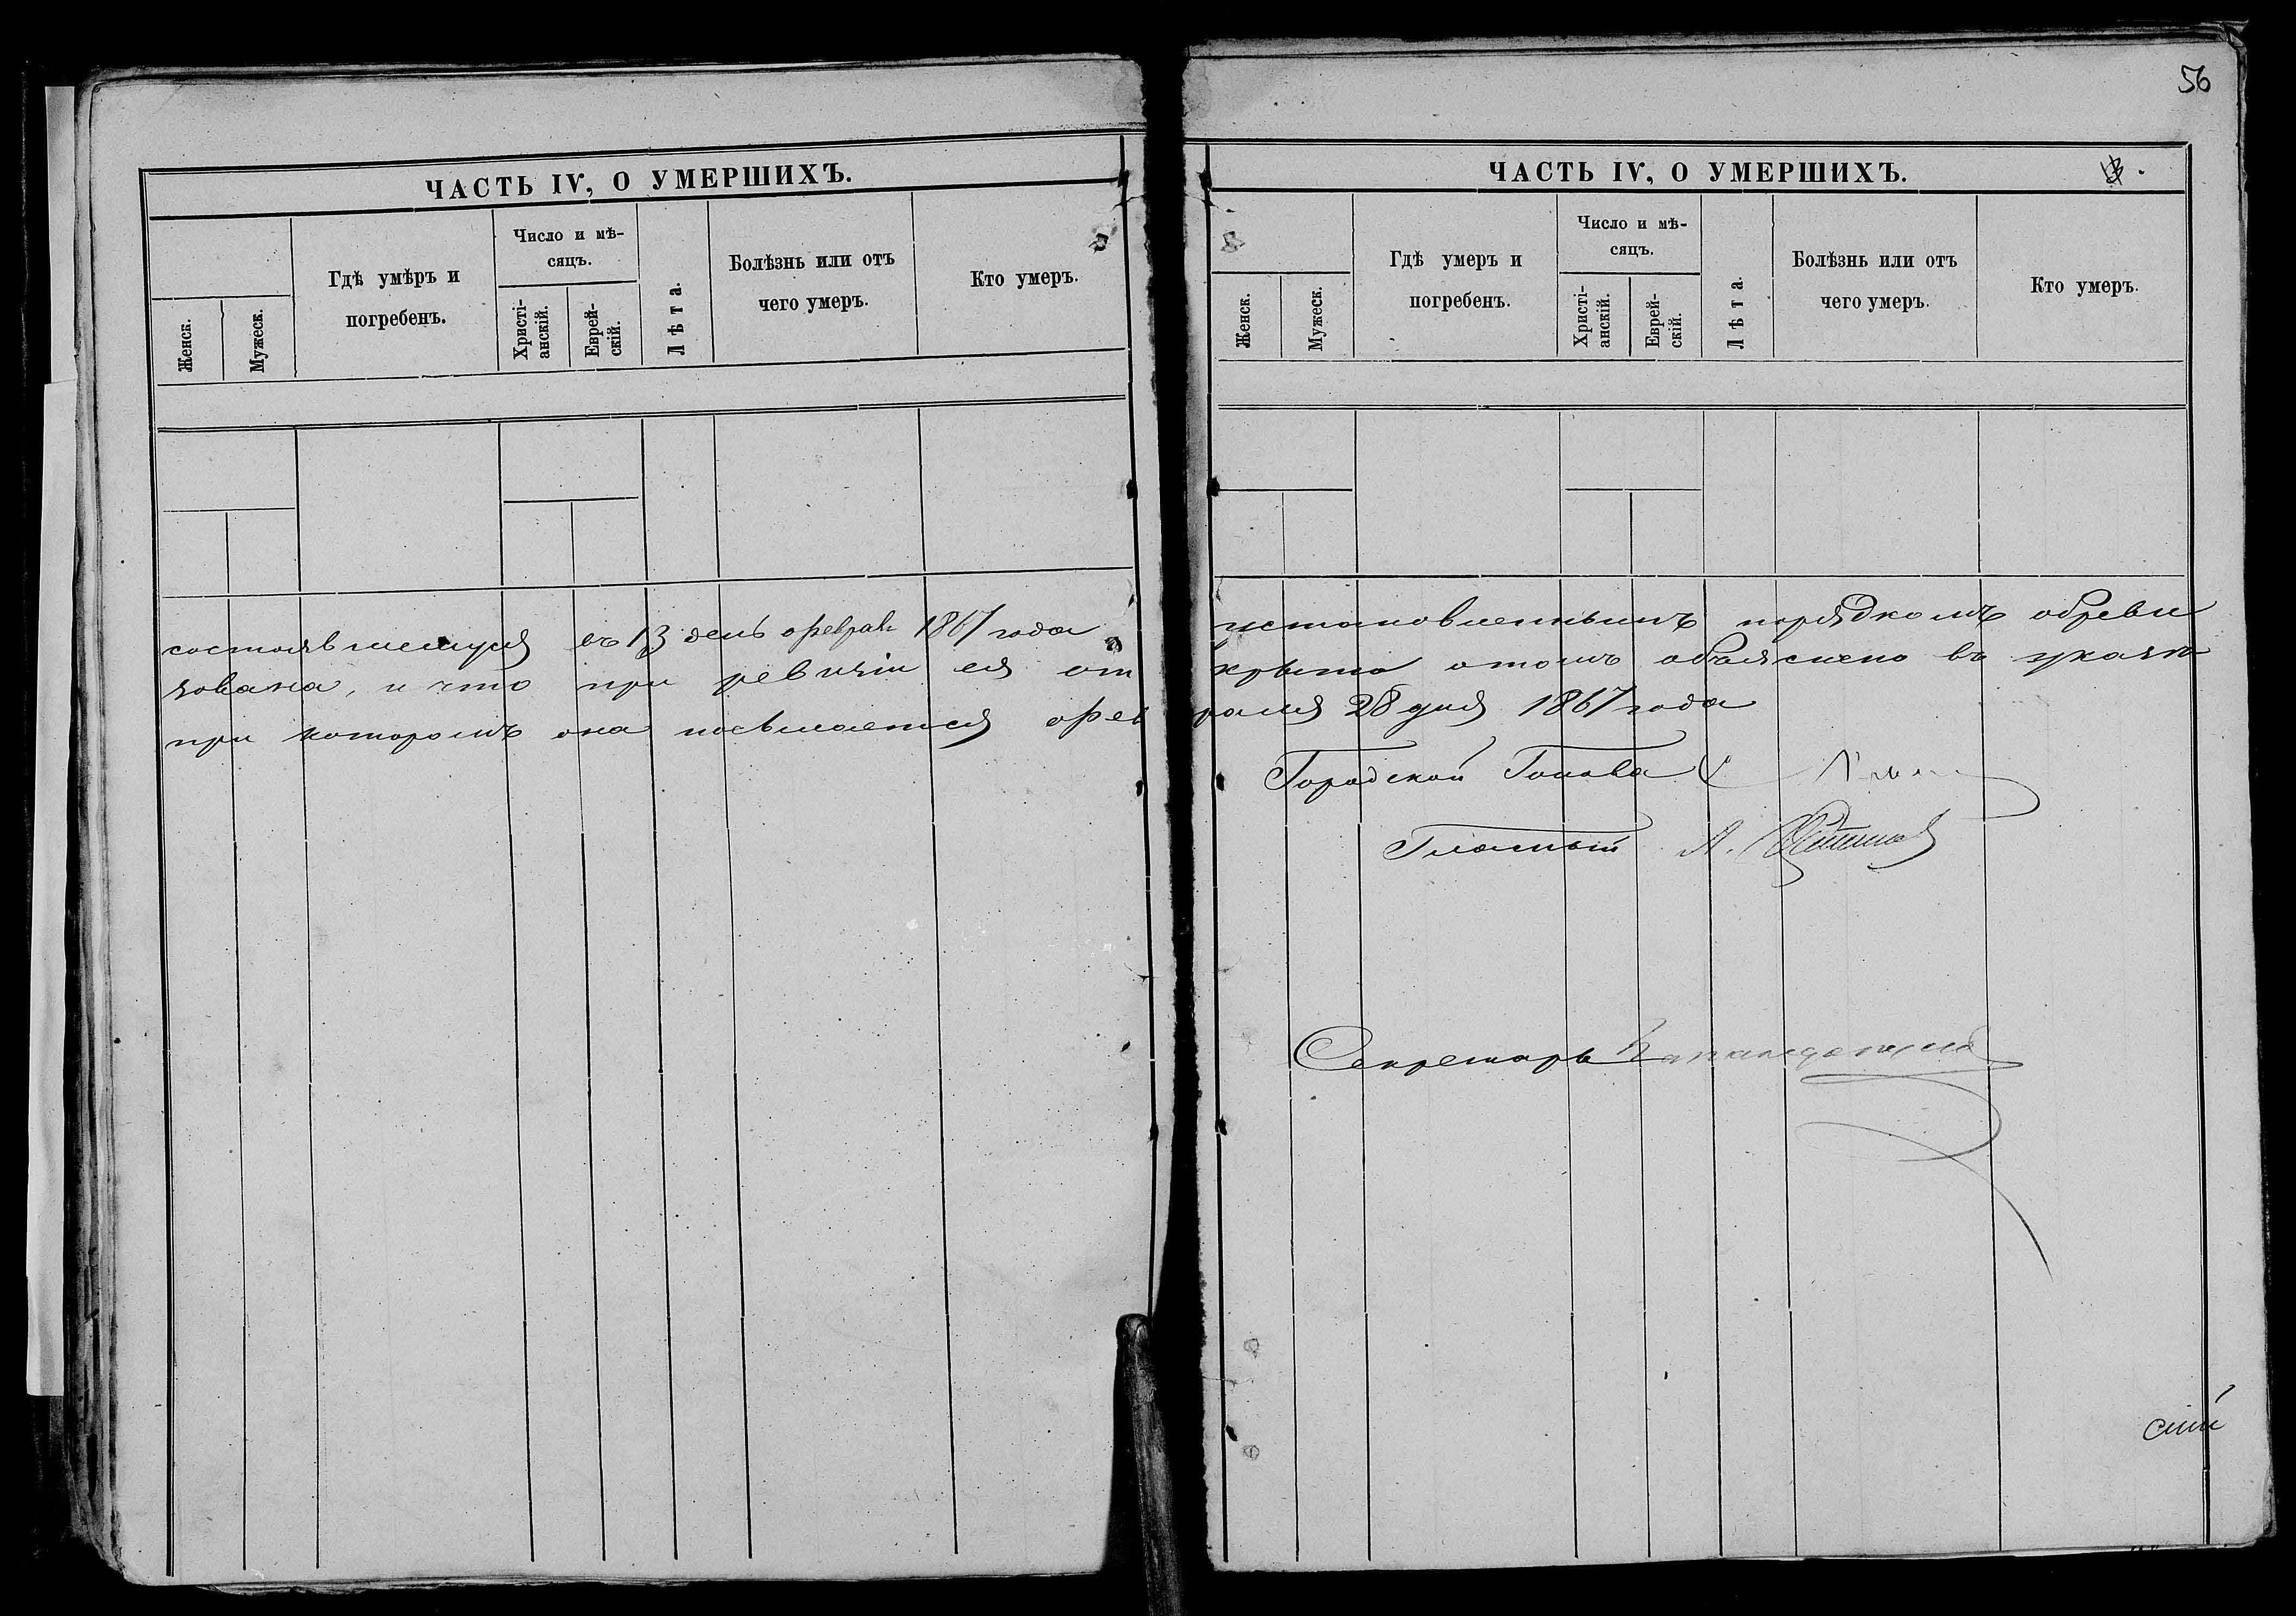 56
ЧАСТЬ IV, О УМЕРШИХЪ.
Женск.
Мужеск.
Гдѣ умѣръ и
погребенъ.
Число и мѣ-
сяцъ.
Христі-
анскій.
Еврей-
скій.
Лѣта.
Болѣзнь или отъ
чего умеръ.
Кто умеръ.
ЧАСТЬ IV, О УМЕРШИХЪ.
Женск.
Мужеск.
Гдѣ умеръ и
погребенъ.
Число и мѣ-
сяцъ.
Христі-
анскій.
Еврей-
скій.
Лѣта.
Болѣзнь или отъ
чего умеръ.
Кто умеръ.
состоявшемуся въ 13 день феврал 1867 года установленнымъ порядкомъ обреви
зована, и что при ревизіи ея от крыто отомъ объяснено въ указѣ
при которомъ она посылается фев раля 28 дня 1867 года
Городской Голова
Гласный А.
Секретарь
сіи